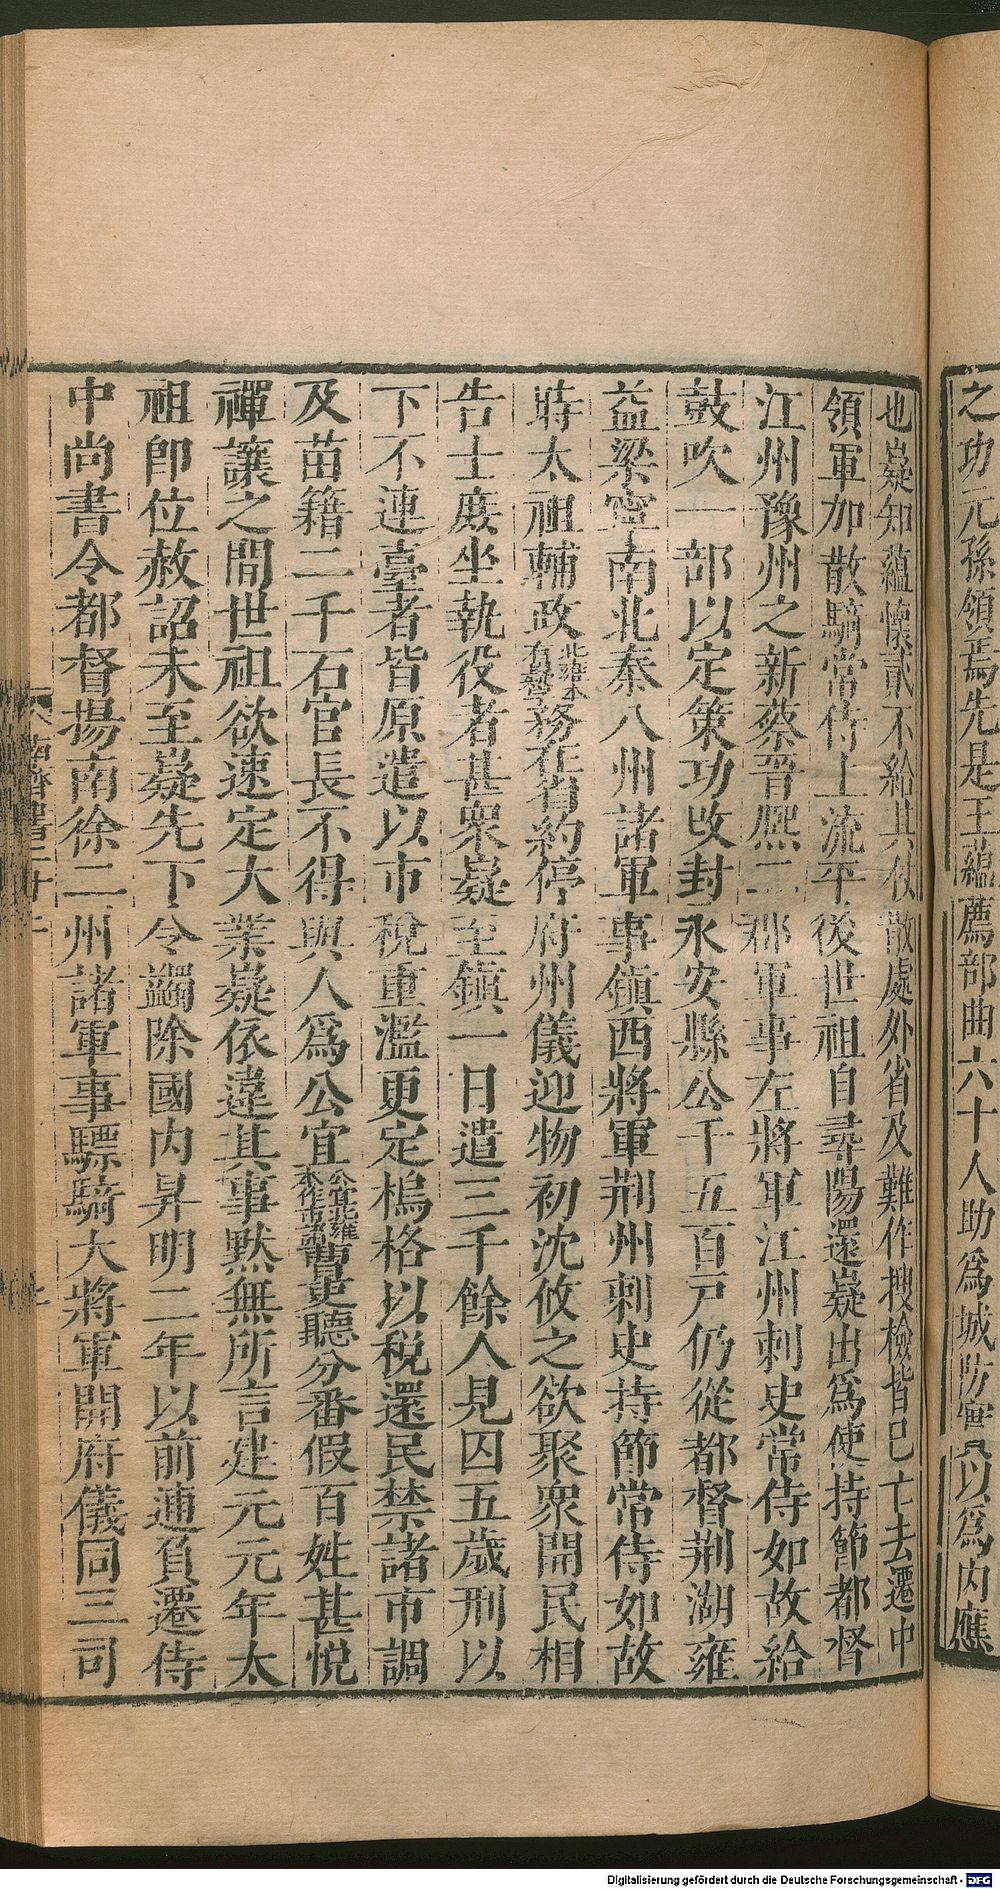 之功元孫領焉先是王蘊薦部曲六十人助爲城防實以爲內應
也嶷知蘊懷貳不給其仗散處外省及難作搜檢皆已亡去遷中
領軍加散騎常侍上流平後世祖自尋陽還嶷出爲使持節都督
江州豫州之新蔡晉熈二郡軍事左將軍江州刺史常侍如故給
鼓吹一部以定策功改封永安縣公千五百戸仍從都督荆湖雍
益梁寧南北秦八州諸軍事鎮西將軍荆州刺史持節常侍如故
時太祖輔政北雍本有嶷字務在省約停府州儀迎物初沈攸之欲聚衆開民相
告士庶坐執役者甚衆嶷至鎮一日遣三千餘人見囚五歲刑以
下不連臺者皆原遣以市稅重濫更定樢格以稅還民禁諸市調
及苗籍二千石官長不得與人爲公宜北雍本作市諸曹吏聽分番假百姓甚悅
禪讓之間世祖欲速定大業嶷依違其事默無所言建元元年太
祖卽位赦詔未至嶷先下令蠲除國內昇明二年以前逋負遷侍
中尚書令都督揚南徐二州諸軍事驃騎大將軍開府儀同三司
Digitalisierung gefördert durch die Deutsche Forschungsgemeinschaft - DFG